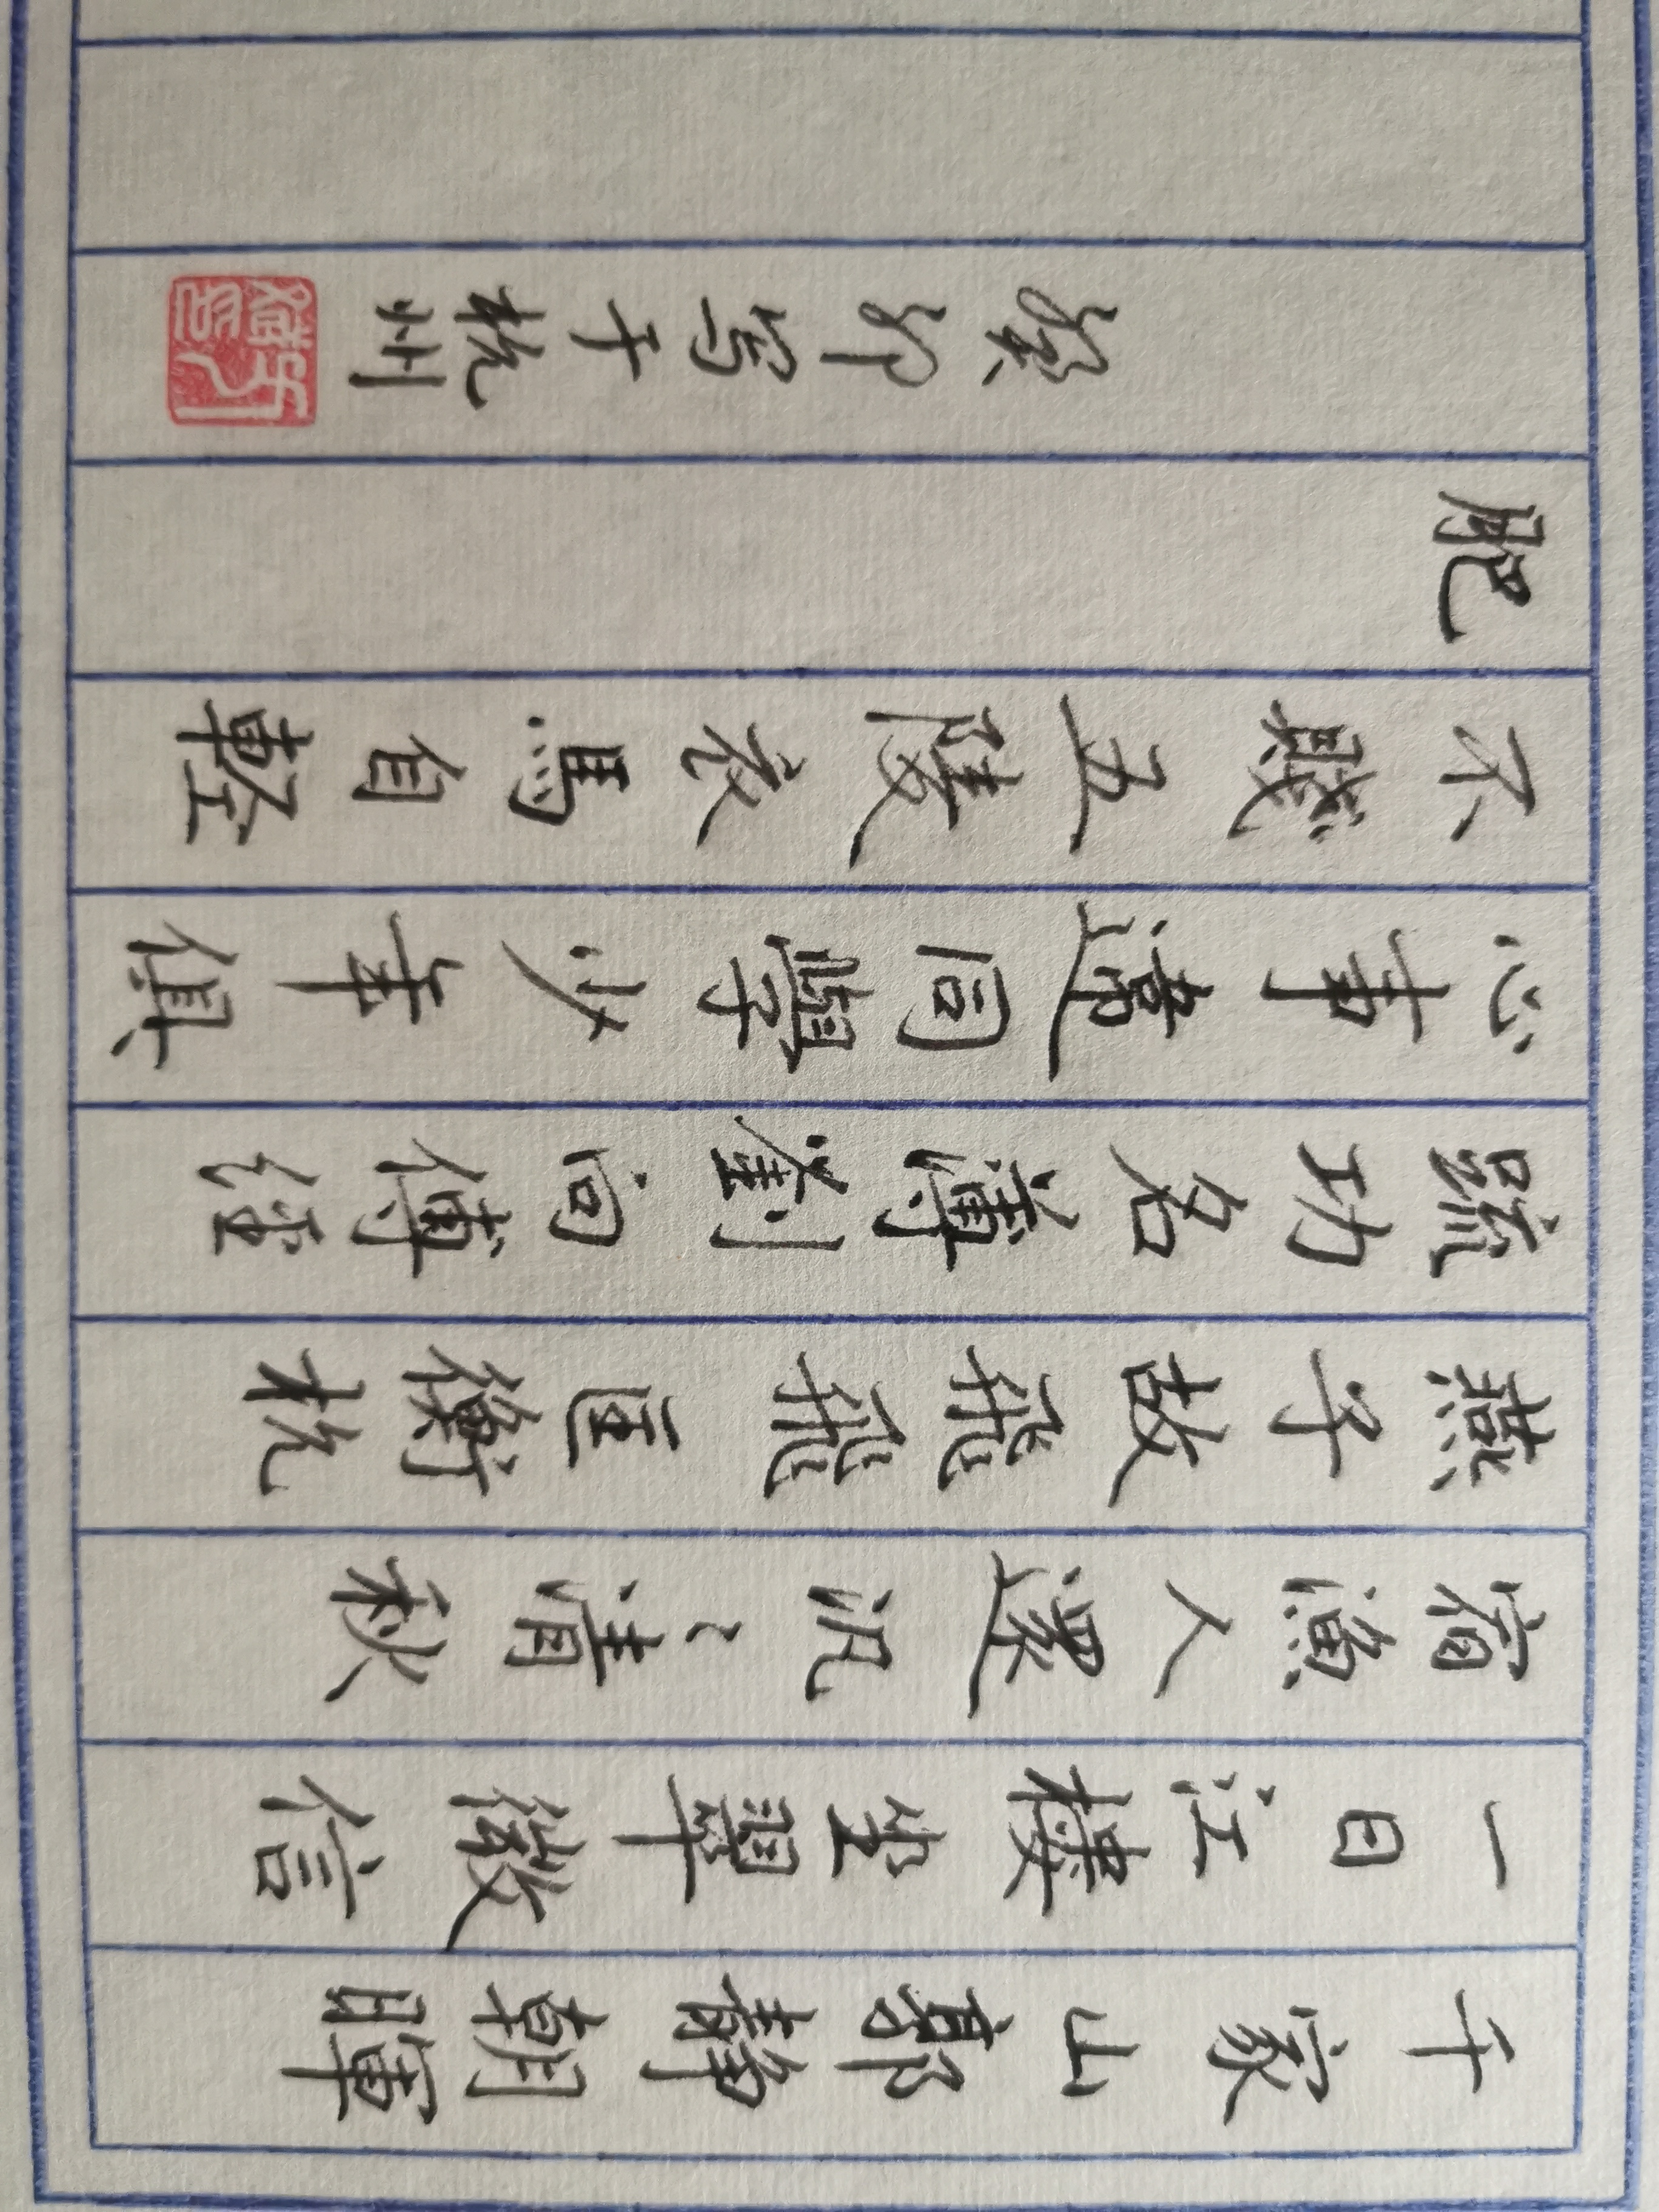 千家山郭靜朝暉
一日江樓坐翠微信
宿漁人還汎〻清秋
燕子故飛飛匡衡抗
疏功名薄劉向傳經
心事違同學少年俱
不賤五陵衣馬自輕
肥
癸卯写于杭州